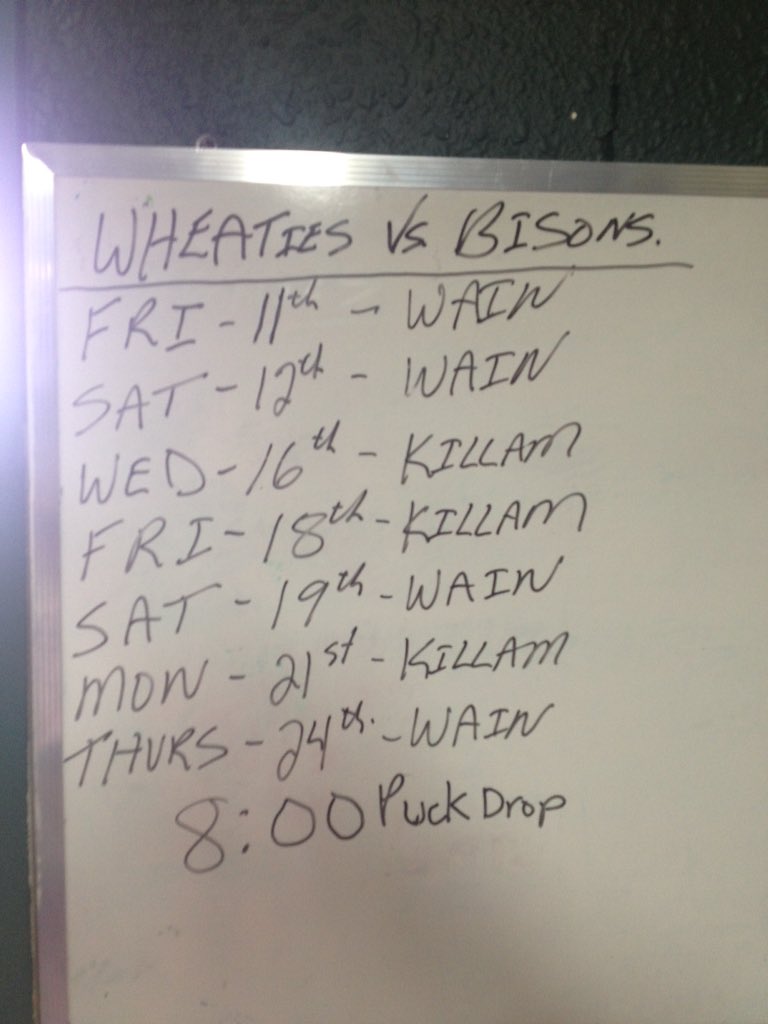 WHEATIES VS BISONS.
FRI - 11th - WAIN
SAT - 12th - WAIN
WED - 16th - KILLAM
FRI - 18th - KILLAM
SAT - 19th - WAIN
MON - 21st - KILLAM
THURS - 24th. - WAIN
8:00 Puck Drop